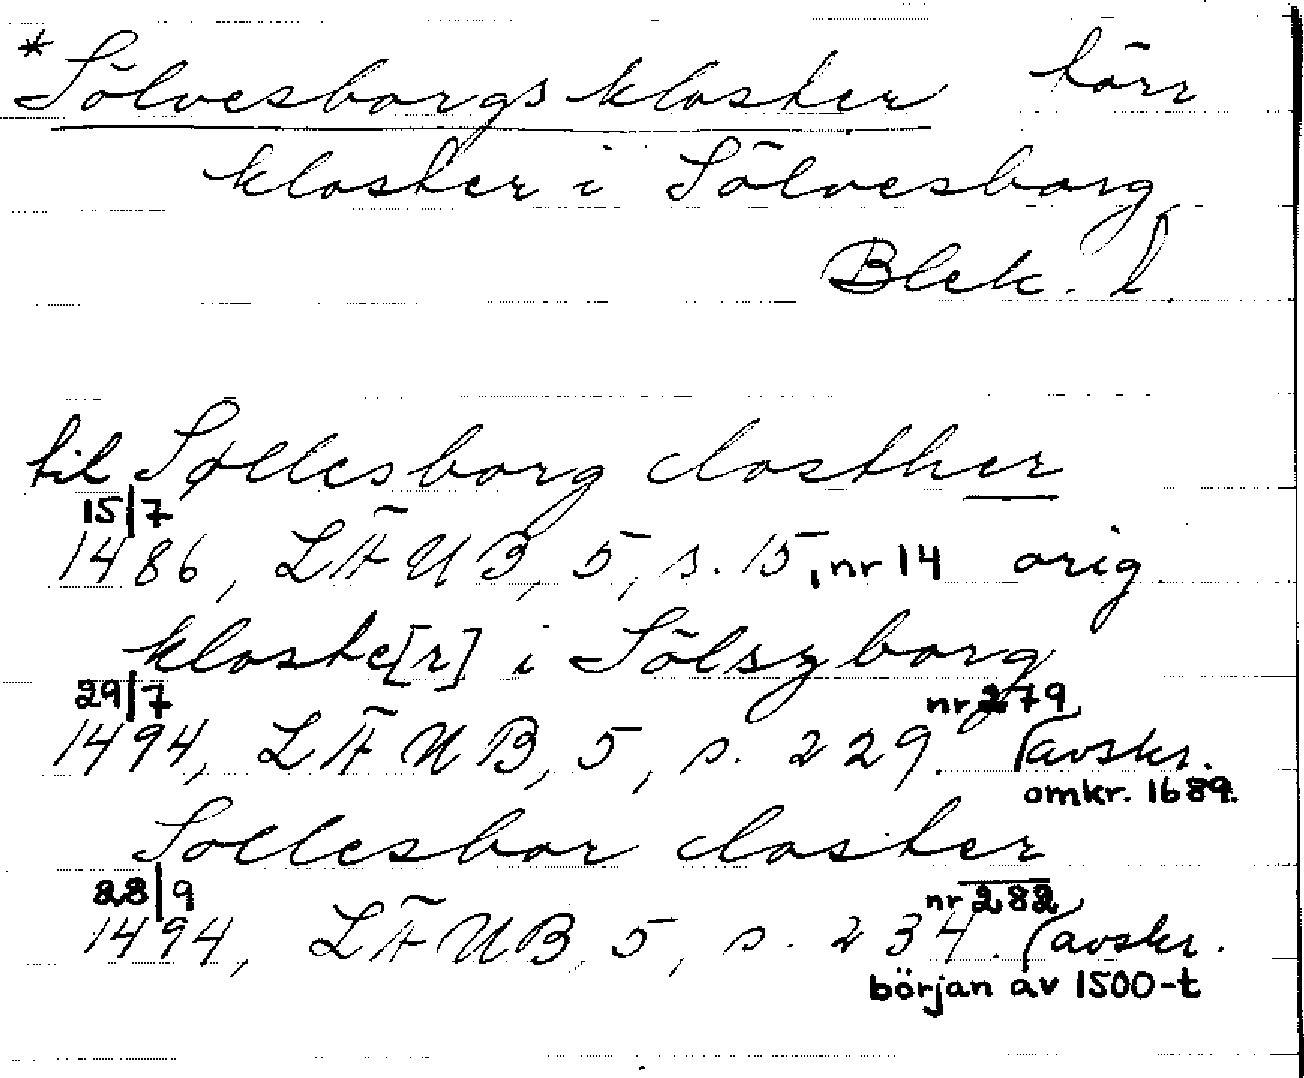 * Sölvesborgs kloster förr
kloster i Sölvesborg
Blek. l.
til Søllesborg closther
15/7
1486, LÄUB, 5, s. 15, nr 14 orig
kloste[r] i Sölszborg
29/7 nr 279,
1494, LÄUB, 5, s. 229. (avskr.
omkr. 1689.
Sollesbor closter
28/9 nr 282,
1494, LÄUB, 5, s. 234. (avskr.
början av 1500-t